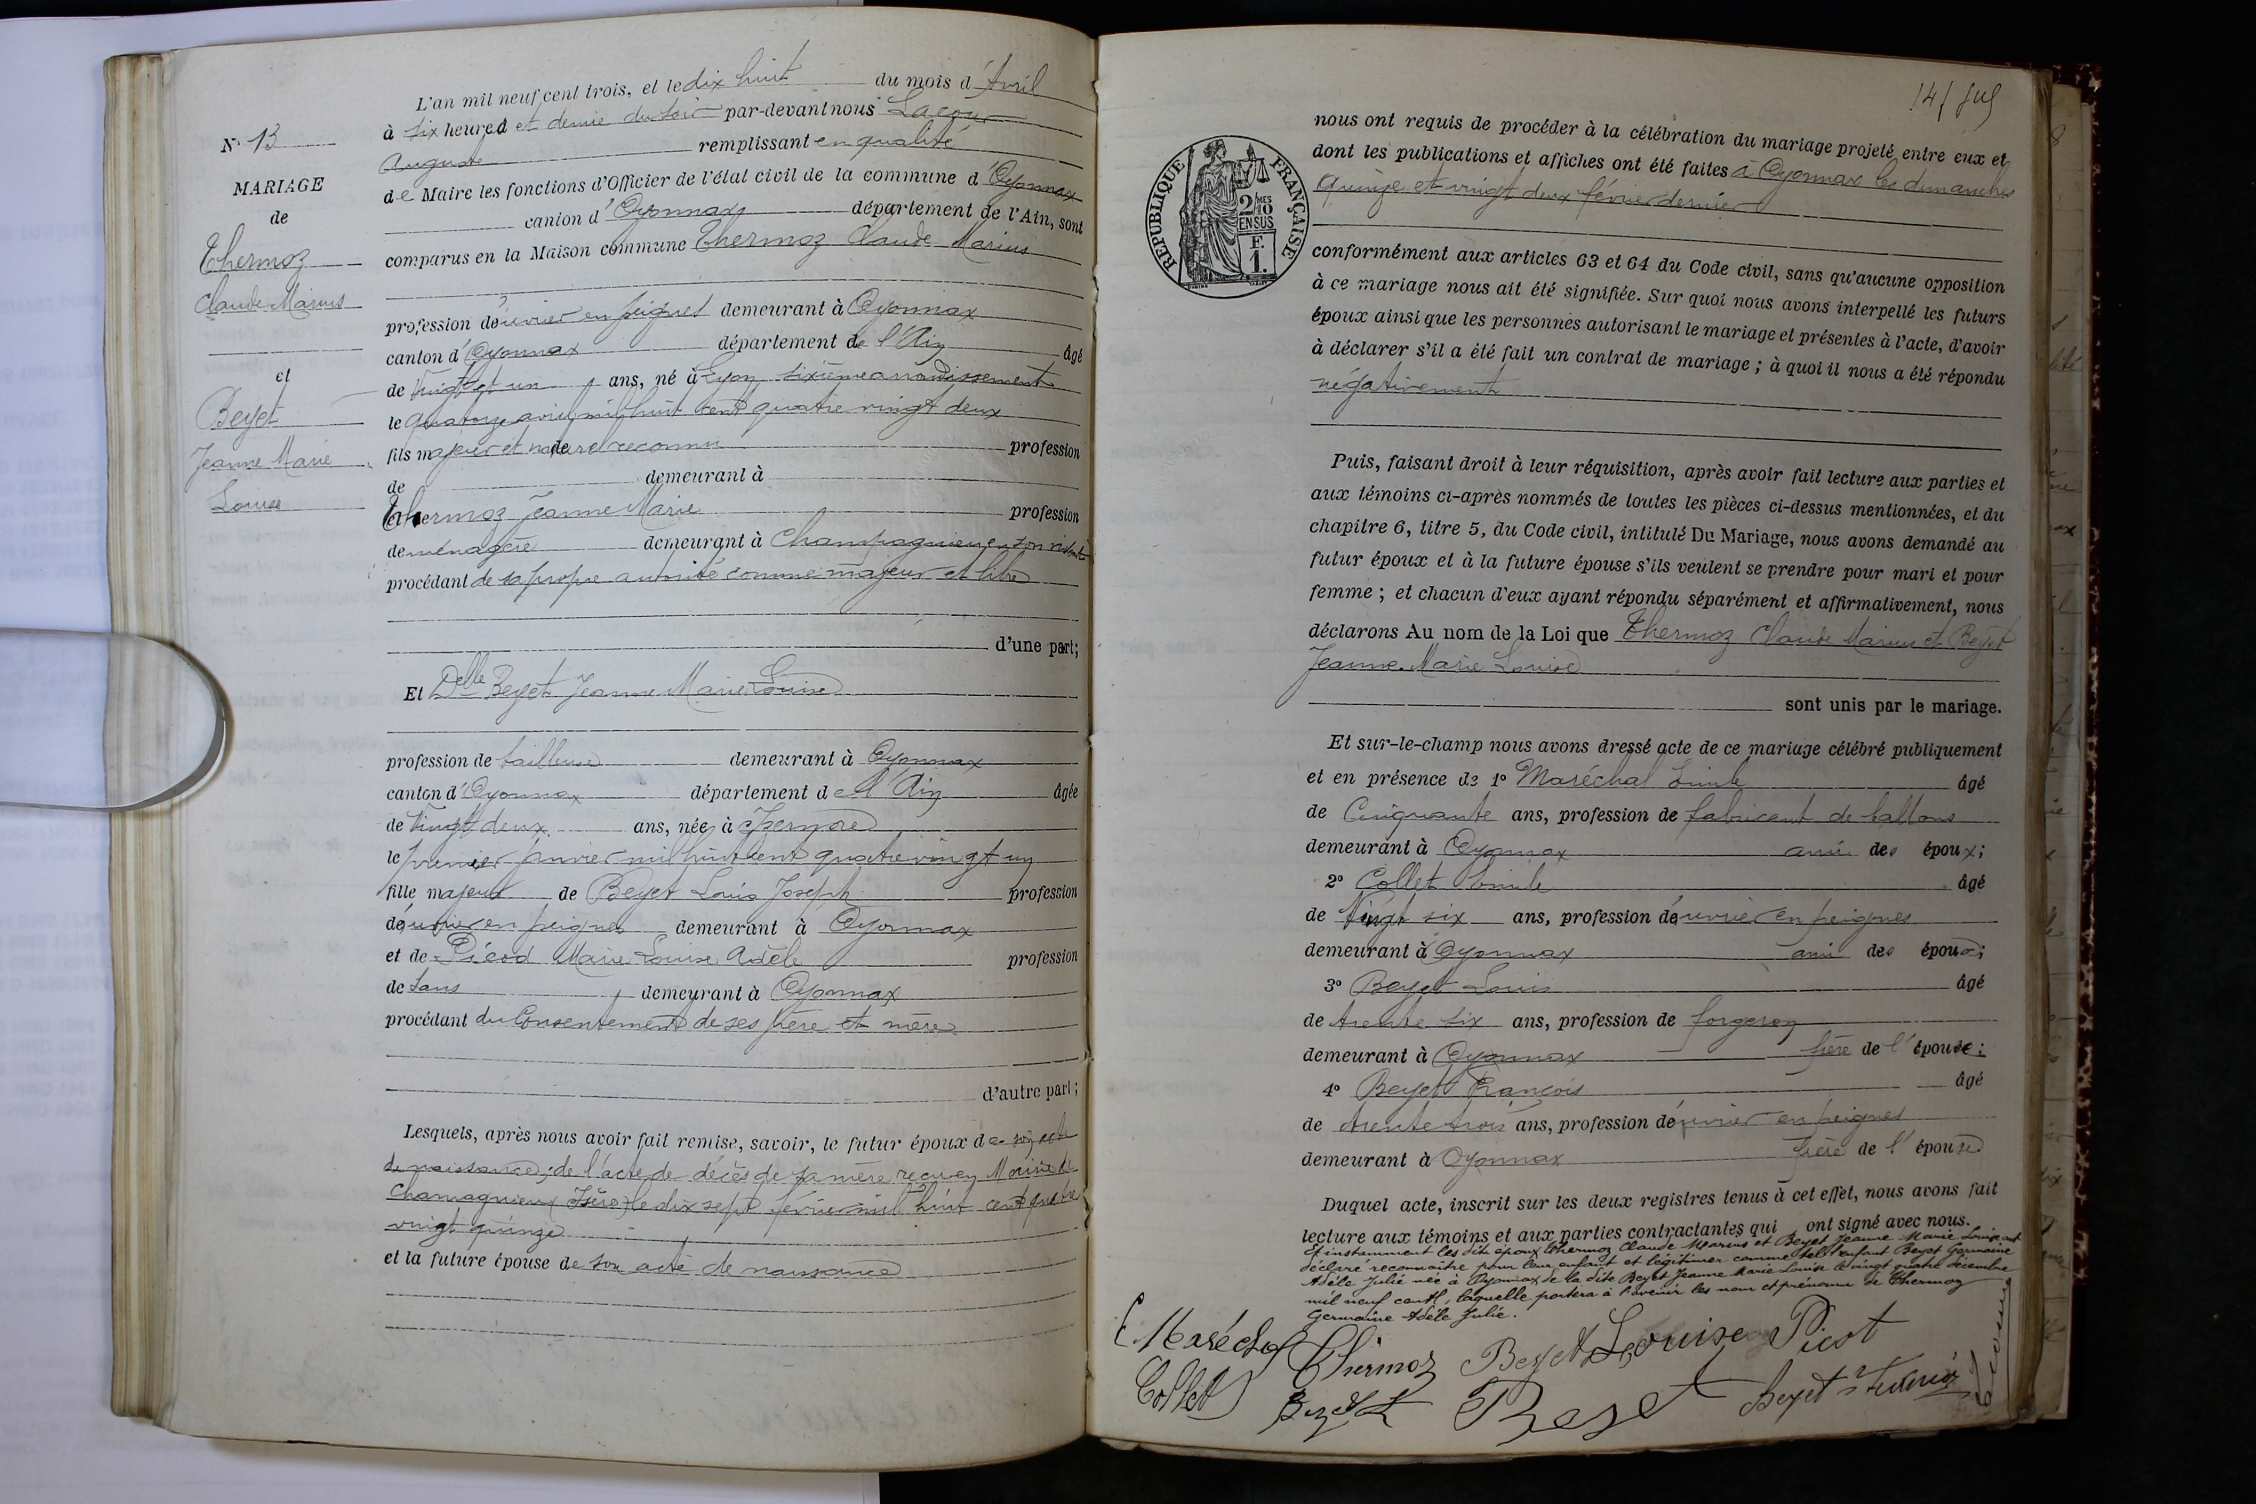 N° 13
MARIAGE
de
Thermoz
Claude Marius
et
Beyet
Jeanne Marie
Louise
L'an mil neuf cent trois, et le dix huit du mois d'Avril
à six heures et demie du soir par-devant nous Lacour
Auguste remplissant en qualité
de Maire les fonctions d'Officier de l'état civil de la commune d'Oyonnax
canton d'Oyonnax département de l'Ain, sont
comparus en la Maison commune Thermoz Claude Marius
profession d'ouvrier en peignes demeurant à Oyonnax
canton d'Oyonnax département de l'Ain âgé
de vingt et un ans, né à Lyon sixième arrondissement
le quatorze avril mil huit cent quatre vingt deux
fils majeur et naturel reconnu profession
de demeurant à
Thermoz Jeanne Marie profession
de ménagère demeurant à en son vivant
procédant de sa propre autorité comme majeur et libre
d'une part;
Et Delle Beyet Jeanne Marie Louise
profession de tailleuse demeurant à Oyonnax
canton d'Oyonnax département de l'Ain âgée
de vingt deux ans, née à Izernore
le premier janvier mil huit cent quatre vingt un
fille majeure de Beyet Louis Joseph profession
d'ouvrier en peignes demeurant à Oyonnax
et de Picod Marie Louise Adèle profession
de sans demeurant à Oyonnax
procédant du consentement de ses père et mère
d'autre part;
Lesquels, après nous avoir fait remise, savoir, le futur époux de son acte
de naissance; de l'acte de décès de sa mère reçu en Mairie de
Chamagnieux (Isère) le dix sept février mil huit cent quatre
vingt quinze
et la future épouse de son acte de naissance
14
REPUBLIQUE FRANÇAISE
2/10 MES
EN SUS
F.
1.
nous ont requis de procéder à la célébration du mariage projeté entre eux et
dont les publications et affiches ont été faites à Oyonnax les dimanches
quinze et vingt deux février dernier
conformément aux articles 63 et 64 du Code civil, sans qu'aucune opposition
à ce mariage nous ait été signifiée. Sur quoi nous avons interpellé les futurs
époux ainsi que les personnes autorisant le mariage et présentes à l'acte, d'avoir
à déclarer s'il a été fait un contrat de mariage; à quoi il nous a été répondu
négativement
Puis, faisant droit à leur réquisition, après avoir fait lecture aux parties et
aux témoins ci-après nommés de toutes les pièces ci-dessus mentionnées, et du
chapitre 6, titre 5, du Code civil, intitulé Du Mariage, nous avons demandé au
futur époux et à la future épouse s'ils veulent se prendre pour mari et pour
femme; et chacun d'eux ayant répondu séparément et affirmativement, nous
déclarons Au nom de la Loi que Thermoz Claude Marius et Beyet
Jeanne Marie Louise
sont unis par le mariage.
Et sur-le-champ nous avons dressé acte de ce mariage célébré publiquement
et en présence de 1° Maréchal Emile âgé
de Cinquante ans, profession de fabricant de ballons
demeurant à Oyonnax ami des époux;
2° Collet Emile âgé
de vingt six ans, profession d'ouvrier en peignes
demeurant à Oyonnax ami des époux;
3° Beyet Louis âgé
de trente six ans, profession de forgeron
demeurant à Oyonnax frère de l'épouse;
4° Beyet François âgé
de trente trois ans, profession d'ouvrier en peignes
demeurant à Oyonnax frère de l'épouse
Duquel acte, inscrit sur les deux registres tenus à cet effet, nous avons fait
lecture aux témoins et aux parties contractantes qui ont signé avec nous.
Et instamment les dits époux Thermoz Claude Marius et Beyet Jeanne Marie Louise ont
déclaré reconnaitre pour leur enfant et légitimer comme tel l'enfant Beyet Germaine
Adèle Julie née à Oyonnax de la dite Beyet Jeanne Marie Louise le vingt quatre décembre
mil neuf cent, laquelle portera à l'avenir les nom et prénoms de Thermoz
Germaine Adèle Julie.
E. Maréchal Thermoz Beyet Louise Picot
Collet Beyet L Beyet Beyet